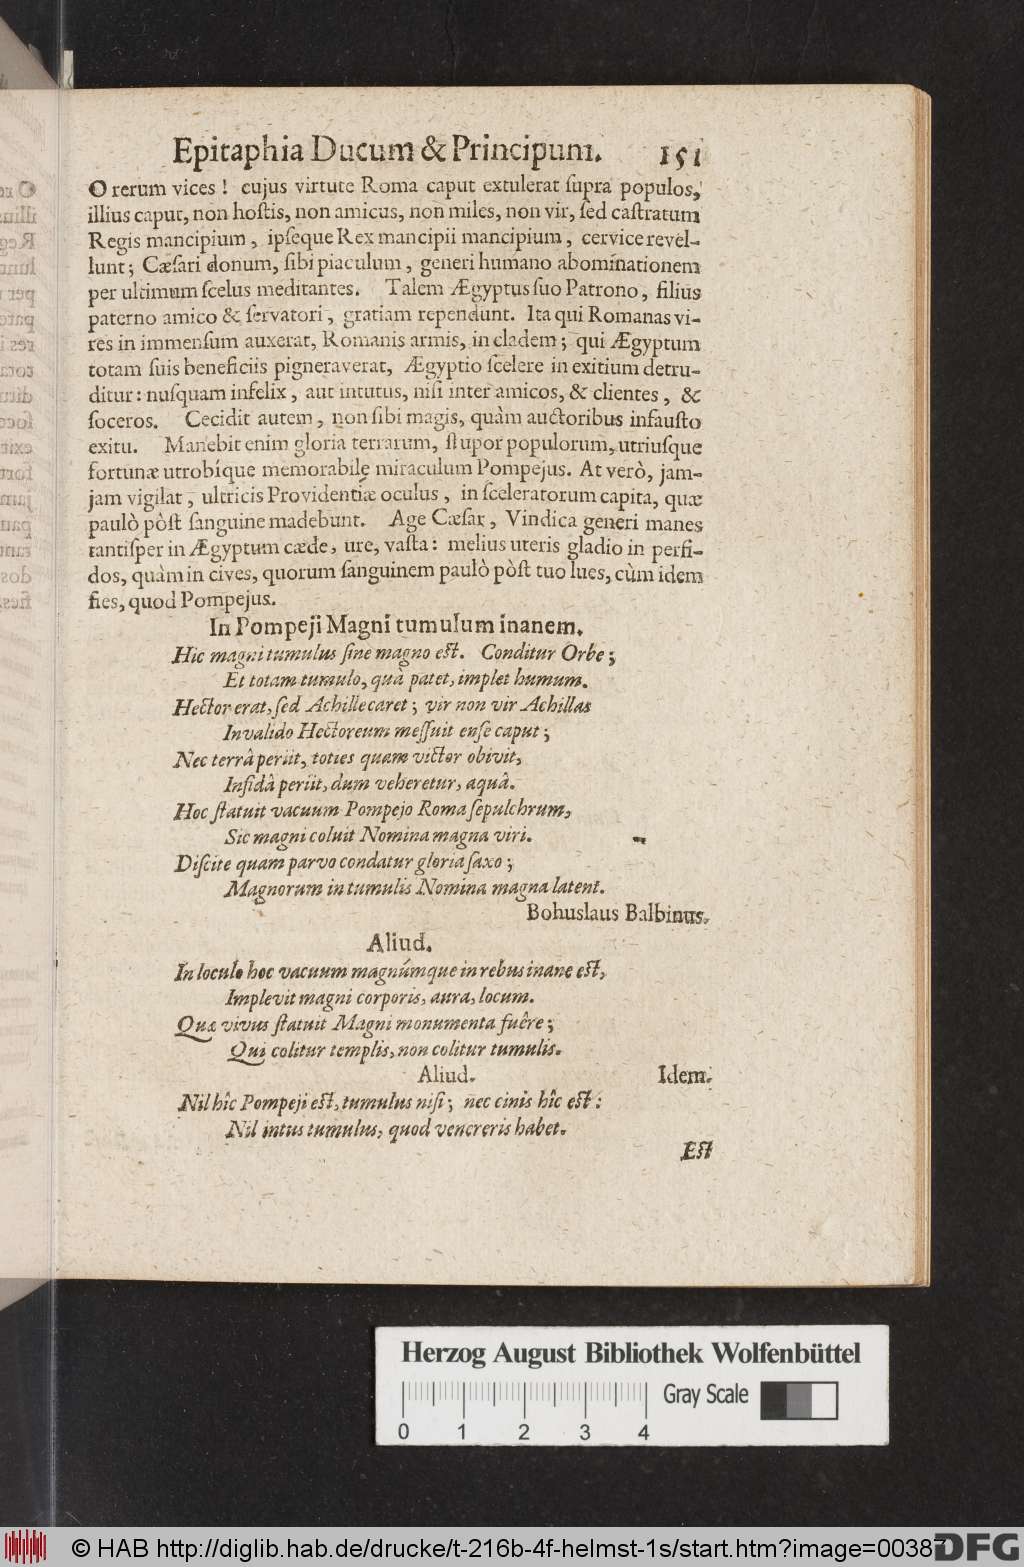 Epitaphia Ducum & Principum. 151
O rerum vices ! cujus virtute Roma caput extulerat ſupra populos,
illius caput, non hoſtis, non amicus, non miles, non vir, ſed caſtratum
Regis mancipium , ipſeque Rex mancipii mancipium , cervice revel-
lunt ; Cæſari donum, ſibi piaculum , generi humano abominationem
per ultimum ſcelus meditantes. Talem Ægyptus ſuo Patrono , filius
paterno amico & ſervatori , gratiam rependunt. Ita qui Romanas vi-
res in immenſum auxerat, Romanis armis, in cladem ; qui Ægyptum
totam ſuis beneficiis pigneraverat, Ægyptio ſcelere in exitium detru-
ditur : nuſquam infelix , aut intutus, niſi inter amicos, & clientes , &
ſoceros. Cecidit autem , non ſibi magis, quàm auctoribus infauſto
exitu. Manebit enim gloria terrarum, ſtupor populorum, utriuſque
fortunæ utrobíque memorabile miraculum Pompejus. At verò, jam-
jam vigilat , ultricis Providentiæ oculus , in ſceleratorum capita, quæ
paulò pòſt ſanguine madebunt. Age Cæſar , Vindica generi manes
tantiſper in Ægyptum cæde, ure, vaſta : melius uteris gladio in perfi-
dos, quàm in cives, quorum ſanguinem paulò pòſt tuo lues, cùm idem
fies, quod Pompejus.
In Pompeji Magni tumulum inanem.
Hic magni tumulus ſine magno eſt. Conditur Orbe ;
Et totam tumulo, quà patet, implet humum.
Hector erat, ſed Achille caret ; vir non vir Achillas
Invalido Hectoreum meſſuit enſe caput ;
Nec terrâ periit, toties quam victor obivit,
Infidâ periit, dum veheretur, aquâ.
Hoc ſtatuit vacuum Pompejo Roma ſepulchrum,
Sic magni coluit Nomina magna viri.
Diſcite quam parvo condatur gloria ſaxo ;
Magnorum in tumulis Nomina magna latent.
Bohuslaus Balbinus.
Aliud.
In loculo hoc vacuum magnúmque in rebus inane eſt,
Implevit magni corporis, aura, locum.
Quæ vivus ſtatuit Magni monumenta fuêre ;
Qui colitur templis, non colitur tumulis.
Aliud. Idem.
Nil hîc Pompeji eſt, tumulus niſi ; nec cinis hîc eſt :
Nil intus tumulus, quod venereris habet.
Eſt
Herzog August Bibliothek Wolfenbüttel
Gray Scale
0 1 2 3 4
© HAB http://diglib.hab.de/drucke/t-216b-4f-helmst-1s/start.htm?image=00387
DFG